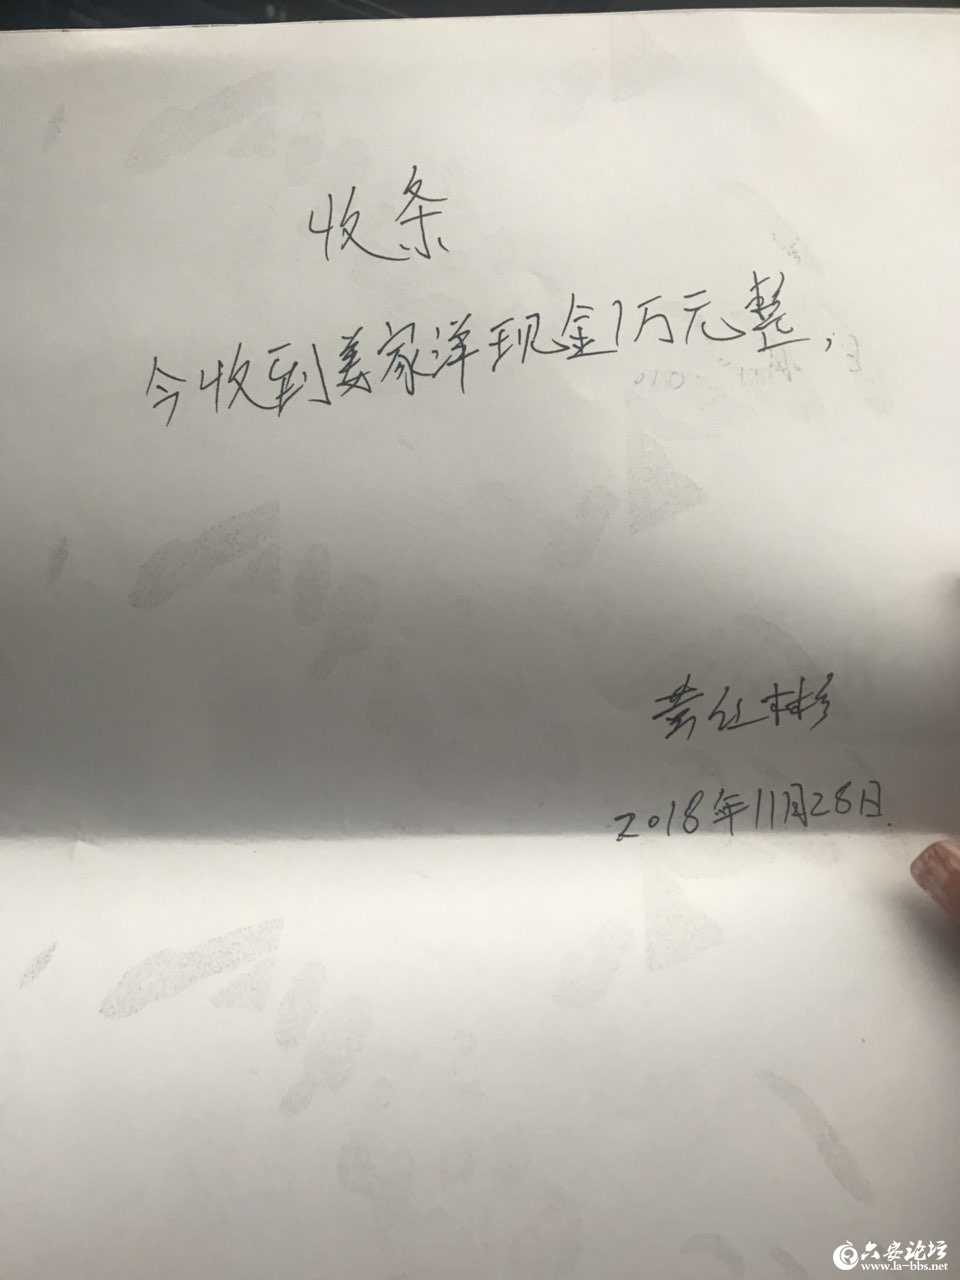 收条
今收到姜家洋现金1万元整，
黄红彬
2018年11月28日.
六安论坛
www.la-bbs.net